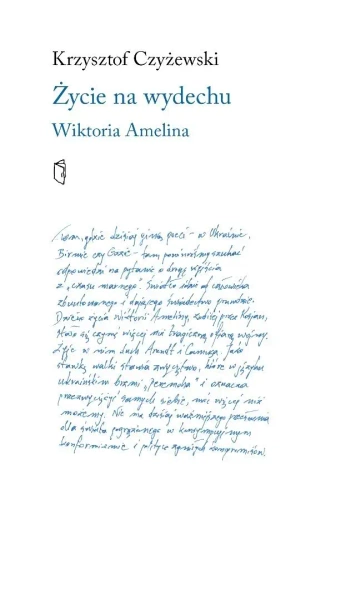 Krzysztof Czyżewski
Życie na wydechu
Wiktoria Amelina
Tam, gdzie dzisiaj giną poeci – w Ukrainie,
Birmie czy Gazie – tam powinniśmy szukać
odpowiedzi na pytanie o drogę wyjścia
z „czasu marnego”. Światło idzie od człowieka
zbuntowanego i dającego świadectwo prawdzie.
Dzieło życia Wiktorii Ameliny, zabitej przez Rosjan,
stało się czymś więcej niż tragiczną ofiarą wojny.
Żyje w nim duch Arendt i Camusa. Jako
stawkę walki stawia zwycięstwo, które w języku
ukraińskim brzmi „Peremoha” i oznacza
przezwyciężyć samych siebie, móc więcej niż
możemy. Nie ma dzisiaj ważniejszego przesłania
dla świata pogrążonego w
konformizmie i polityce zgniłych kompromisów.